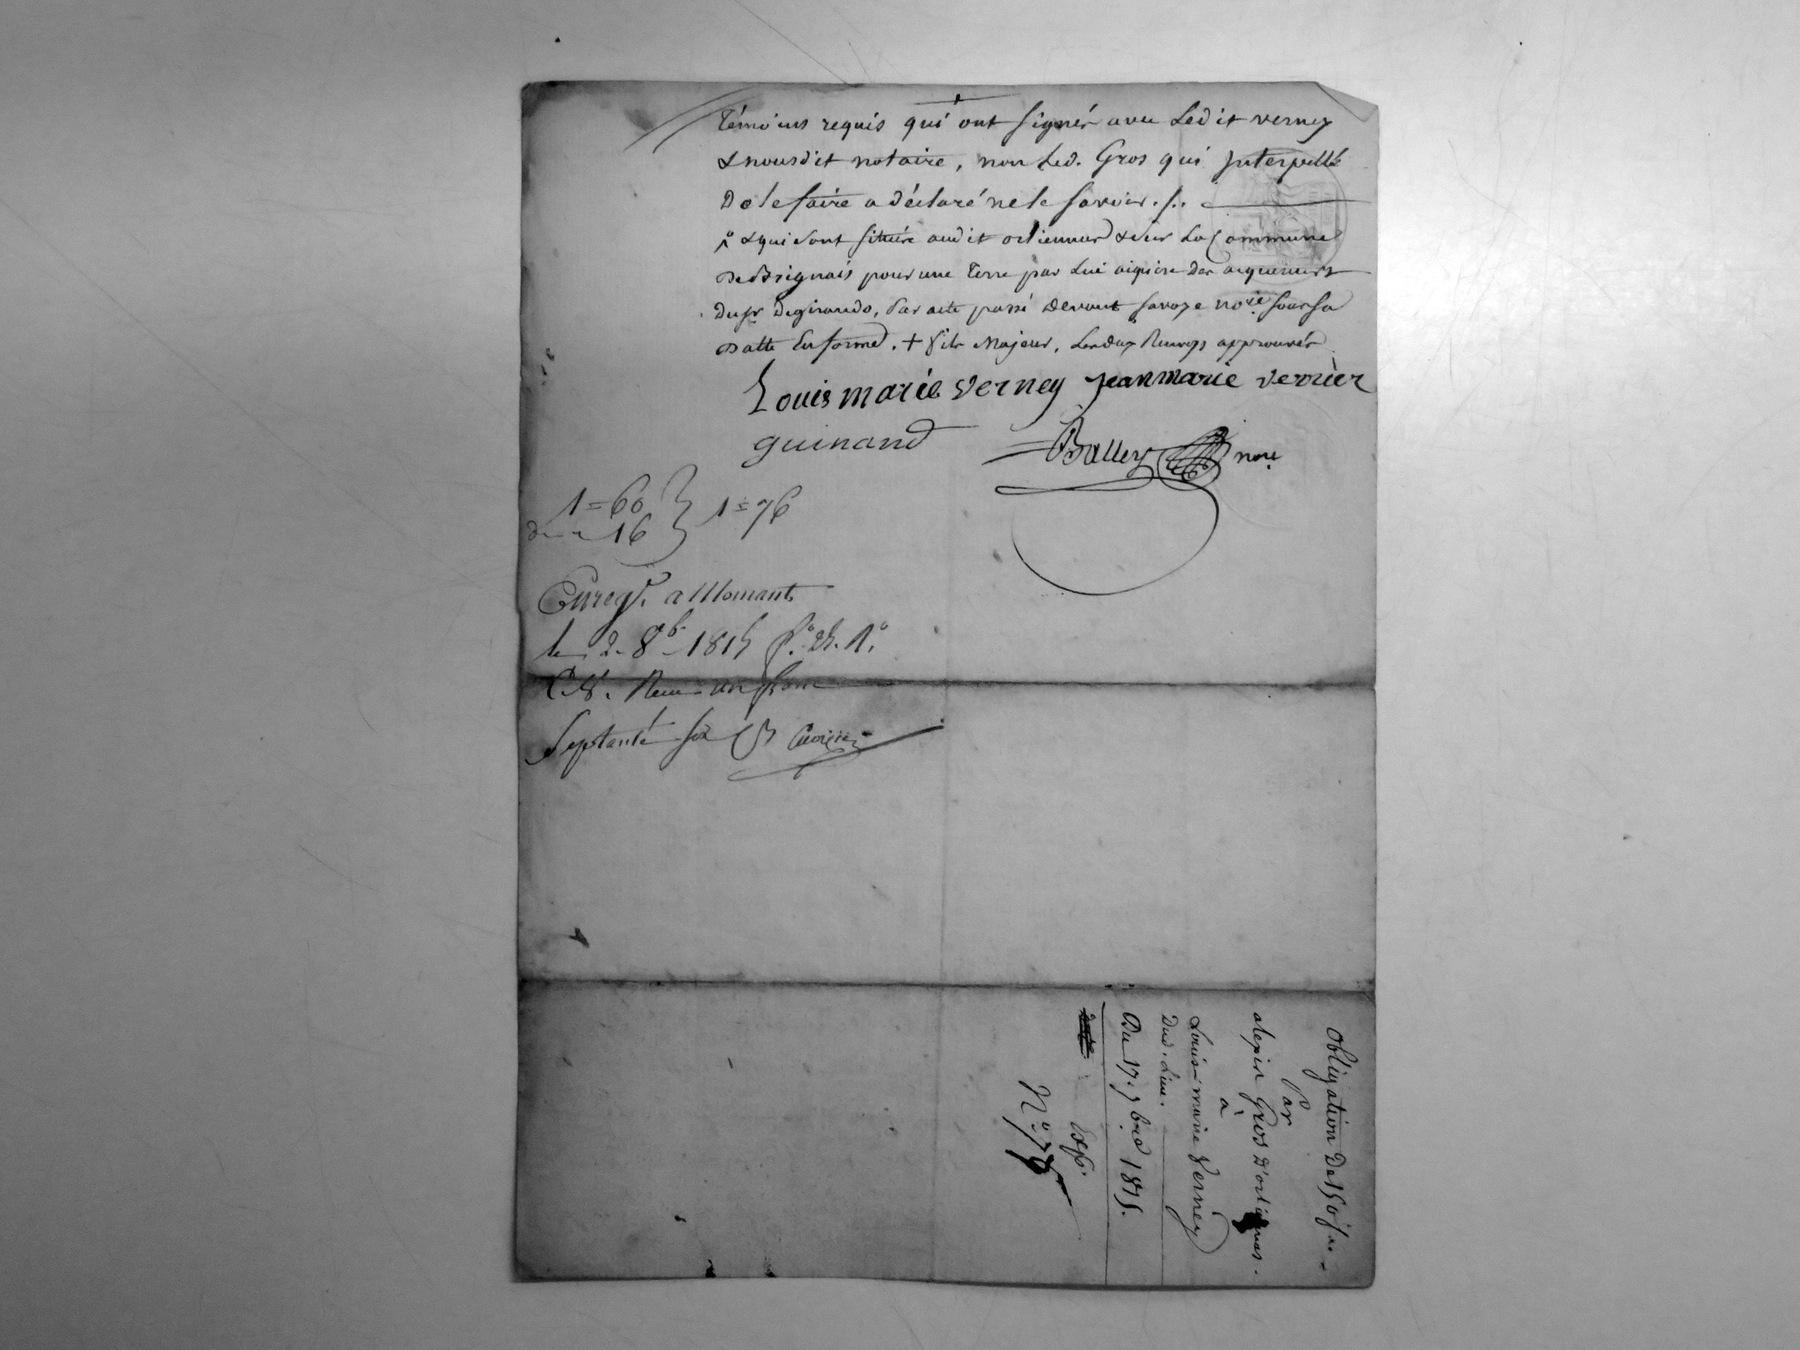 témoins requis qui ont signés avec Ledit verney
& nousdit notaire, non Led. Gros qui Interpellé
De le faire a déclaré ne le savoir ./.
& qui sont située audit orlienmas & sur La Commune
De Brignais pour une Terre par Lui aiquise des aiquereurs
du sr Degirando, Par acte passé devant savoye nore. sous sa
Datte En forme. + fils Majeur, Les deux Renvoys approuvés
Louis marie verney jean marie verrier
guinand Balley nore
1=60 } 1=76
d 16
Enregt. a Mornant
le 2 8b 1815 fo. 25. Ro.
C. 8. Reçu un franc
Septante six
Obligation De 150 f
Par
alexis Gros D'orlienmas.
à
Louis-marie Verney
Dud. Lieu.
Du 17. 7bre 1815.
Exp.
No. 76